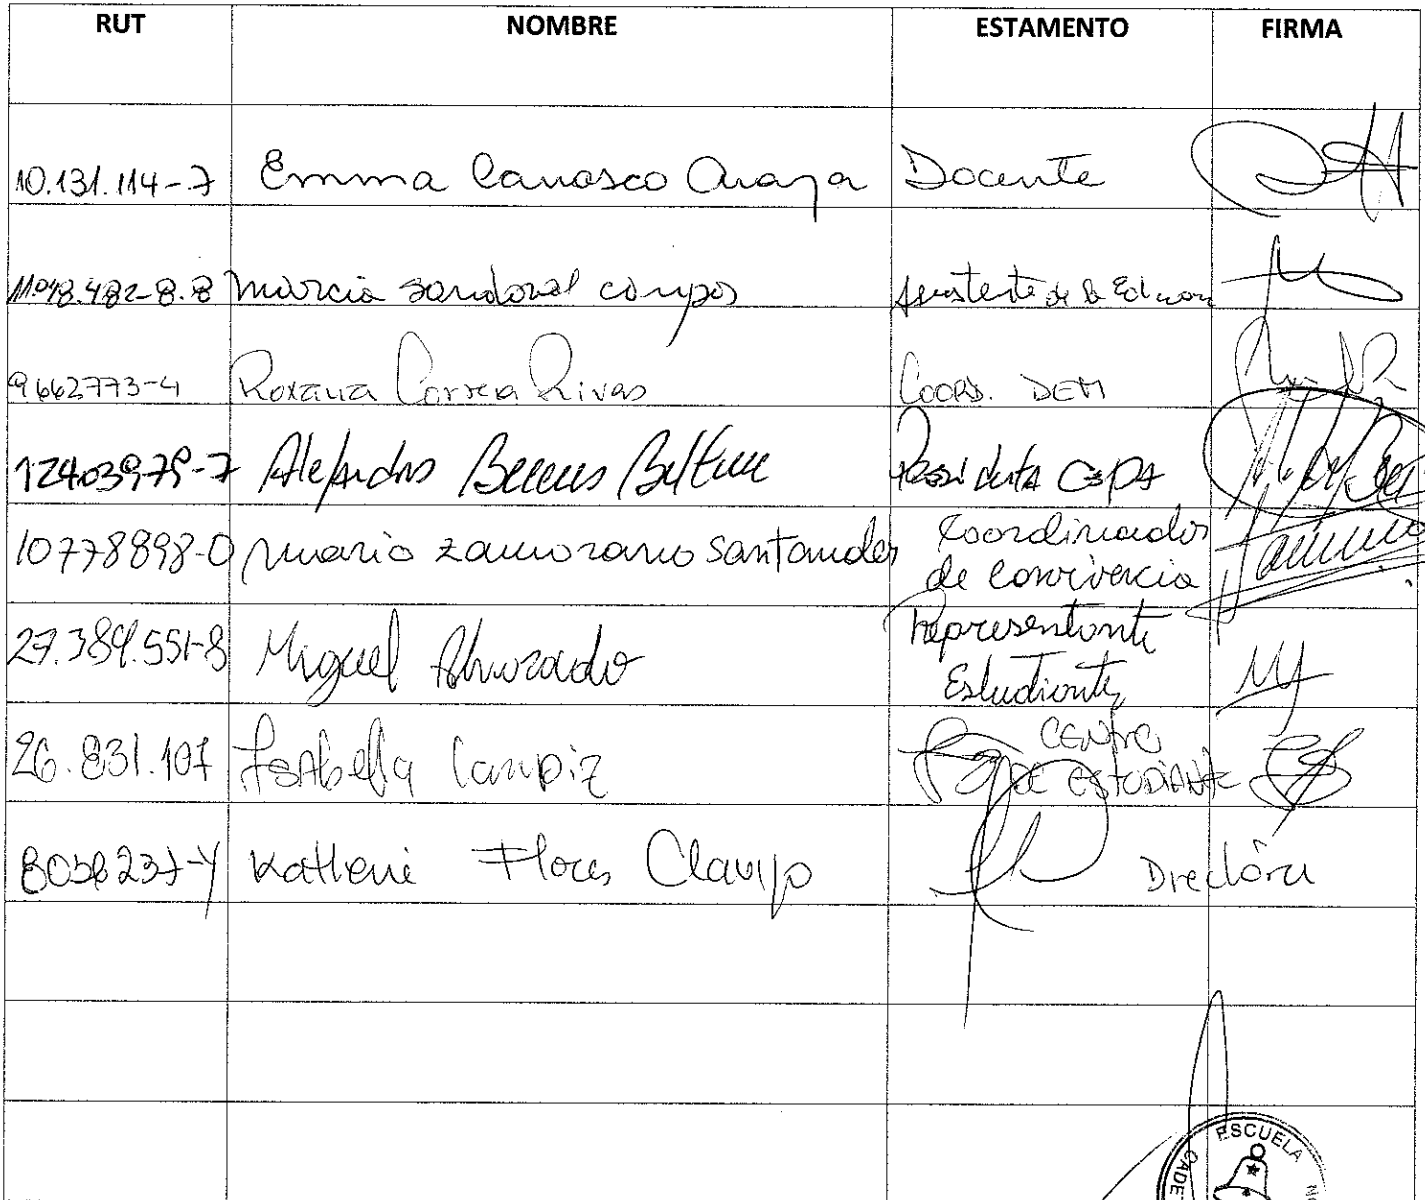 RUT NOMBRE ESTAMENTO FIRMA
10.131.114-7 Emma Carrasco Araya Docente
marcia sandoval campos Asistente de la Educación
9662773-4 Roxana Correa Rivas Coord. DEM
12403979-7 Presidenta CGPA
10778898-0 mario zamorano santander Coordinador
de convivencia
27.389.551-8 Miguel Alvarado Representante
Estudiante
26.831.107 Isabella CENTRO
DE ESTUDIANTE
Flores Clavijo Directora
ESCUELA